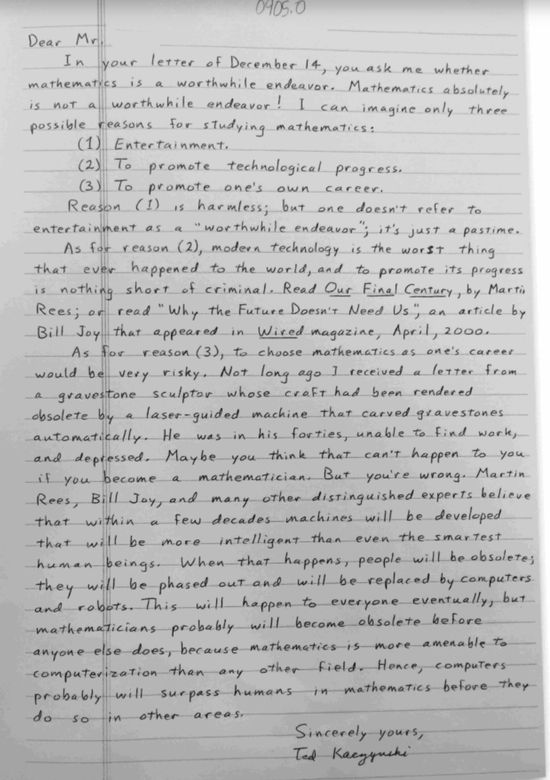 0905.0
Dear Mr.
In your letter of December 14, you ask me whether
mathematics is a worthwhile endeavor. Mathematics absolutely
is not a worthwhile endeavor! I can imagine only three
possible reasons for studying mathematics:
(1) Entertainment.
(2) To promote technological progress.
(3) To promote one's own career.
Reason (1) is harmless; but one doesn't refer to
entertainment as a "worthwhile endeavor"; it's just a pastime.
As for reason (2), modern technology is the worst thing
that ever happened to the world, and to promote its progress
is nothing short of criminal. Read Our Final Century, by Martin
Rees; or read "Why the Future Doesn't Need Us", an article by
Bill Joy that appeared in Wired magazine, April, 2000.
As for reason (3), to choose mathematics as one's career
would be very risky. Not long ago I received a letter from
a gravestone sculptor whose craft had been rendered
obsolete by a laser-guided machine that carved gravestones
automatically. He was in his forties, unable to find work,
and depressed. Maybe you think that can't happen to you
if you become a mathematician. But you're wrong. Martin
Rees, Bill Joy, and many other distinguished experts believe
that within a few decades machines will be developed
that will be more intelligent than even the smartest
human beings. When that happens, people will be obsolete;
they will be phased out and will be replaced by computers
and robots. This will happen to everyone eventually, but
mathematicians probably will become obsolete before
anyone else does, because mathematics is more amenable to
computerization than any other field. Hence, computers
probably will surpass humans in mathematics before they
do so in other areas.
Sincerely yours,
Ted Kaczynski